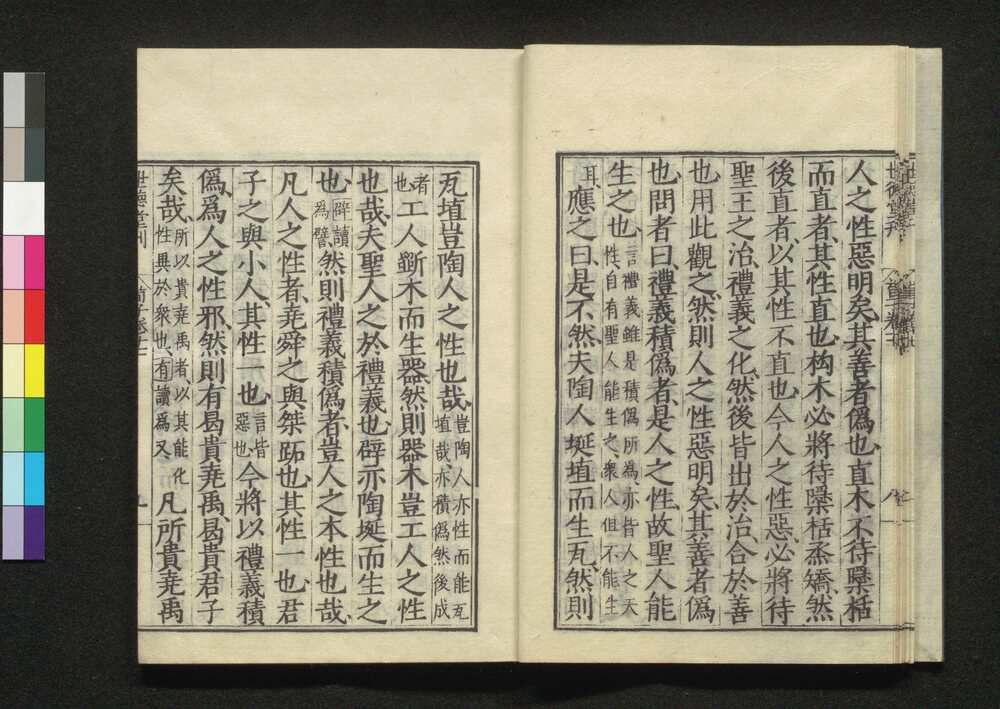 人之性惡明矣其善者僞也直木不待檃栝
而直者其性直也枸木必將待檃栝烝矯然
後直者以其性不直也今人之性惡必將待
聖王之治禮義之化然後皆出於治合於善
也用此觀之然則人之性惡明矣其善者僞
也問者曰禮義積僞者是人之性故聖人能
生之也言禮義雖是積僞所爲亦皆人之天
性自有聖人能生之衆人但不能生
耳應之曰是不然夫陶人埏埴而生瓦然則
瓦埴豈陶人之性也哉豈陶人亦性而能瓦
埴哉亦積僞然後成
者也工人斲木而生器然則器木豈工人之性
也哉夫聖人之於禮義也辟亦陶埏而生之
也辟讀爲譬然則禮義積僞者豈人之本性也哉
凡人之性者堯舜之與桀跖也其性一也君
子之與小人其性一也言皆惡也今將以禮義積
僞爲人之性邪然則有曷貴堯禹曷貴君子
矣哉所以貴堯禹者以其能化
性異於衆也有讀爲又凡所貴堯禹
世德堂刊
荀子卷十七
九